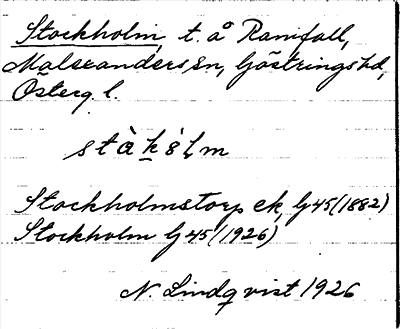 Stockholm, t. å Ramfall,
Malexanders sn, Göstrings hd,
Österg. l.
stàk̲ól̡m
Stockholmstorp ek, bj 45 (1882)
Stockholm bj 45 (1926)
N. Lindqvist 1926